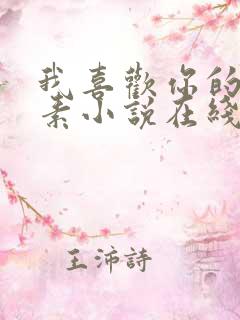 我喜歡你的
素小說在綫
王沛詩